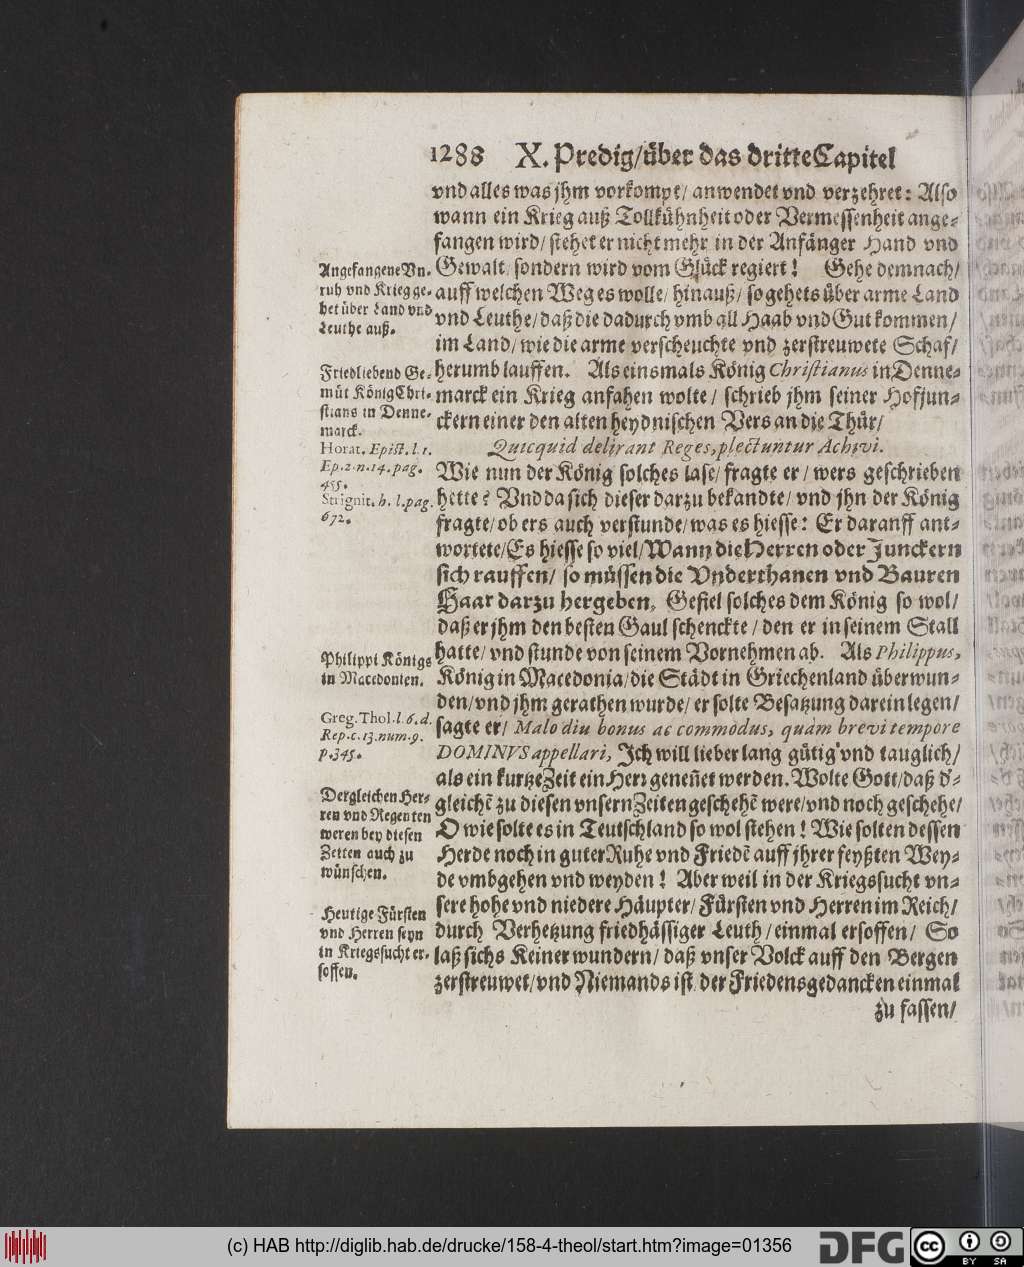 1288 X. Predig/über das dritte Capitel
vnd alles was jhm vorkompt/ anwendet vnd verzehret: Also
wann ein Krieg auß Tollkühnheit oder Vermessenheit ange-
fangen wird/ stehet er nicht mehr in der Anfänger Hand vnd
Gewalt/ sondern wird vom Glück regiert! Gehe demnach/
auff welchen Weg es wolle/ hinauß/ so gehets über arme Land
vnd Leuthe/ daß die dadurch vmb all Haab vnd Gut kommen/
im Land/ wie die arme verscheuchte vnd zerstreuwete Schaf/
herumb lauffen. Als einsmals König Christianus in Denne-
marck ein Krieg anfahen wolte/ schrieb jhm seiner Hofjun-
ckern einer den alten heydnischen Vers an die Thür/
Quicquid delirant Reges, plectuntur Achivi.
Wie nun der König solches lase/ fragte er/ wers geschrieben
hette? Vnd da sich dieser darzu bekandte/ vnd jhn der König
fragte/ ob ers auch verstunde/ was es hiesse: Er darauff ant-
wortete/ Es hiesse so viel/ Wann die Herren oder Junckern
sich rauffen/ so müssen die Vnderthanen vnd Bauren
Haar darzu hergeben. Gefiel solches dem König so wol/
daß er jhm den besten Gaul schenckte/ den er in seinem Stall
hatte/ vnd stunde von seinem Vornehmen ab. Als Philippus,
König in Macedonia/ die Städt in Griechenland überwun-
den/ vnd jhm gerathen wurde/ er solte Besatzung darein legen/
sagte er/ Malo diu bonus ac commodus, quàm brevi tempore
DOMINVS appellari, Ich will lieber lang gütig vnd tauglich/
als ein kurtze Zeit ein Herr geneñet werden. Wolte Gott/ daß d'-
gleichē zu diesen vnsern Zeiten geschehē were/ vnd noch geschehe/
O wie solte es in Teutschland so wol stehen! Wie solten dessen
Herde noch in guter Ruhe vnd Friedē auff jhrer feyßten Wey-
de vmbgehen vnd weyden! Aber weil in der Kriegssucht vn-
sere hohe vnd niedere Häupter/ Fürsten vnd Herren im Reich/
durch Verhetzung friedhässiger Leuth/ einmal ersoffen/ So
laß sichs Keiner wundern/ daß vnser Volck auff den Bergen
zerstreuwet/ vnd Niemands ist der Friedensgedancken einmal
zu fassen/
Angefangene Vn-
ruh vnd Krieg ge-
het über Land vnd
Leuthe auß.
Friedliebend Ge-
müt König Chri-
stians in Denne-
marck.
Horat. Epist. l. 1.
Ep. 2. n. 14. pag.
455.
Strignit. h. l. pag.
672.
Philippi Königs
in Macedonien.
Greg. Thol. l. 6. d.
Rep. c. 13. num. 9.
p. 345.
Dergleichen Her-
ren vnd Regenten
weren bey diesen
Zeiten auch zu
wünschen.
Heutige Fürsten
vnd Herren seyn
in Kriegssucht er-
soffen.
(c) HAB http://diglib.hab.de/drucke/158-4-theol/start.htm?image=01356
DFG
cc
BY SA